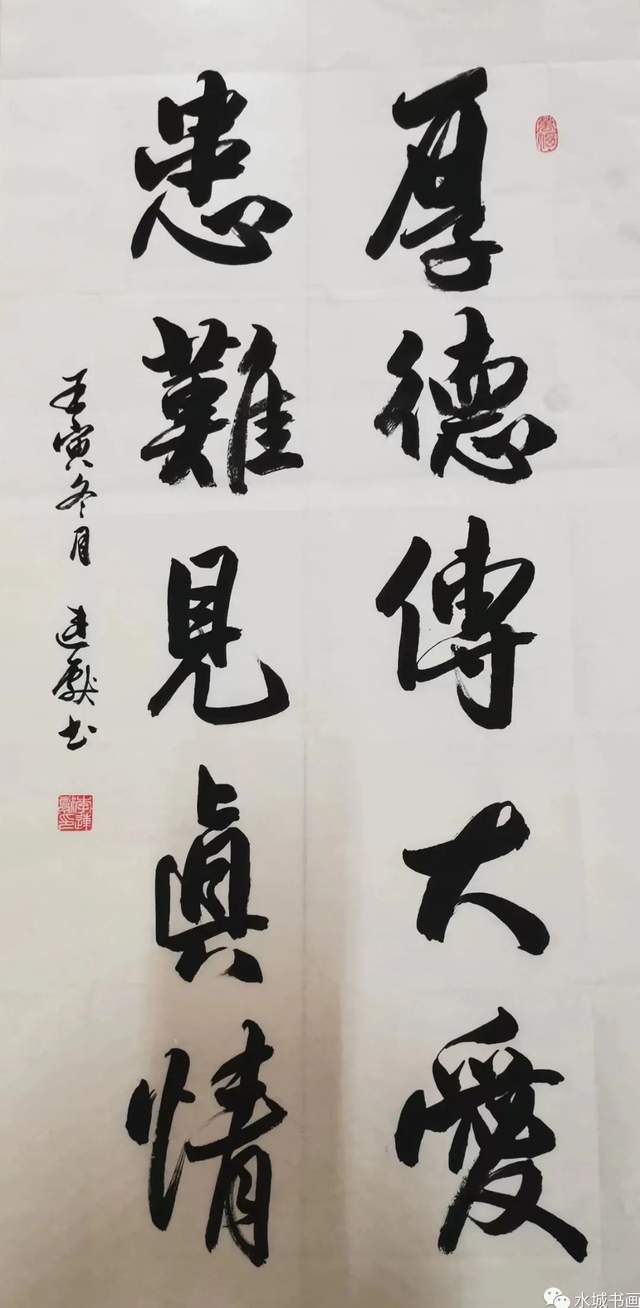 厚德傳大愛
患難見真情
壬寅冬月 連獻书
水城书画